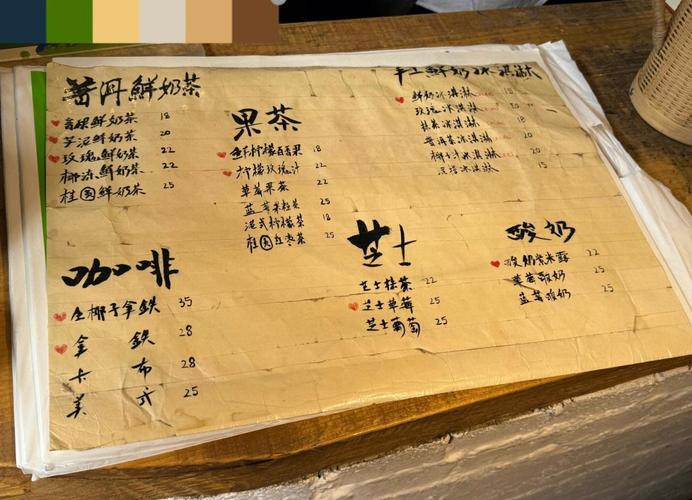 普洱鮮奶茶
青稞鮮奶茶 18
芋泥鮮奶茶 20
玫瑰鮮奶茶 22
椰冻鮮奶茶 22
桂圆鮮奶茶 25
果茶
鲜柠檬百香果 18
柠檬玫瑰汁 22
草莓果茶 22
蓝莓果粒茶 25
港式柠檬茶 18
桂圆红枣茶 25
手工鮮奶冰淇淋
鲜奶冰淇淋 15
玫瑰冰淇淋 20
抹茶冰淇淋 18
普洱茶冰淇淋 20
椰子汁冰淇淋 20
冰淇淋 15
咖啡
生椰子拿鉄 35
拿鉄 28
卡布 28
美式 25
芝士
芝士桂茶 22
芝士草莓 25
芝士葡萄 25
酸奶
酸奶紫米露 22
草莓酸奶 25
蓝莓酸奶 25